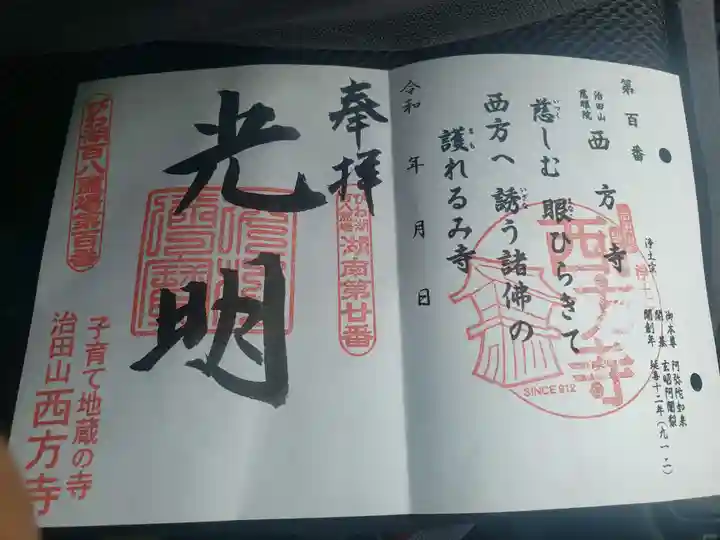 第百番
治田山
慈眼院
西方寺
浄土宗
御本尊 阿弥陀如来
開基 玄昭阿闍梨
開創年 延喜十二年(九一二)
慈しむ眼ひらきて
いつく
まなこ
西方へ誘う諸佛の
いざな
護れるみ寺
まも
西方寺
SINCE 912
令和 年 月 日
奉拝
びわ湖
百八霊場
湖南第廿番
光明
びわ湖百八霊場第百番
子育て地蔵の寺
治田山 西方寺